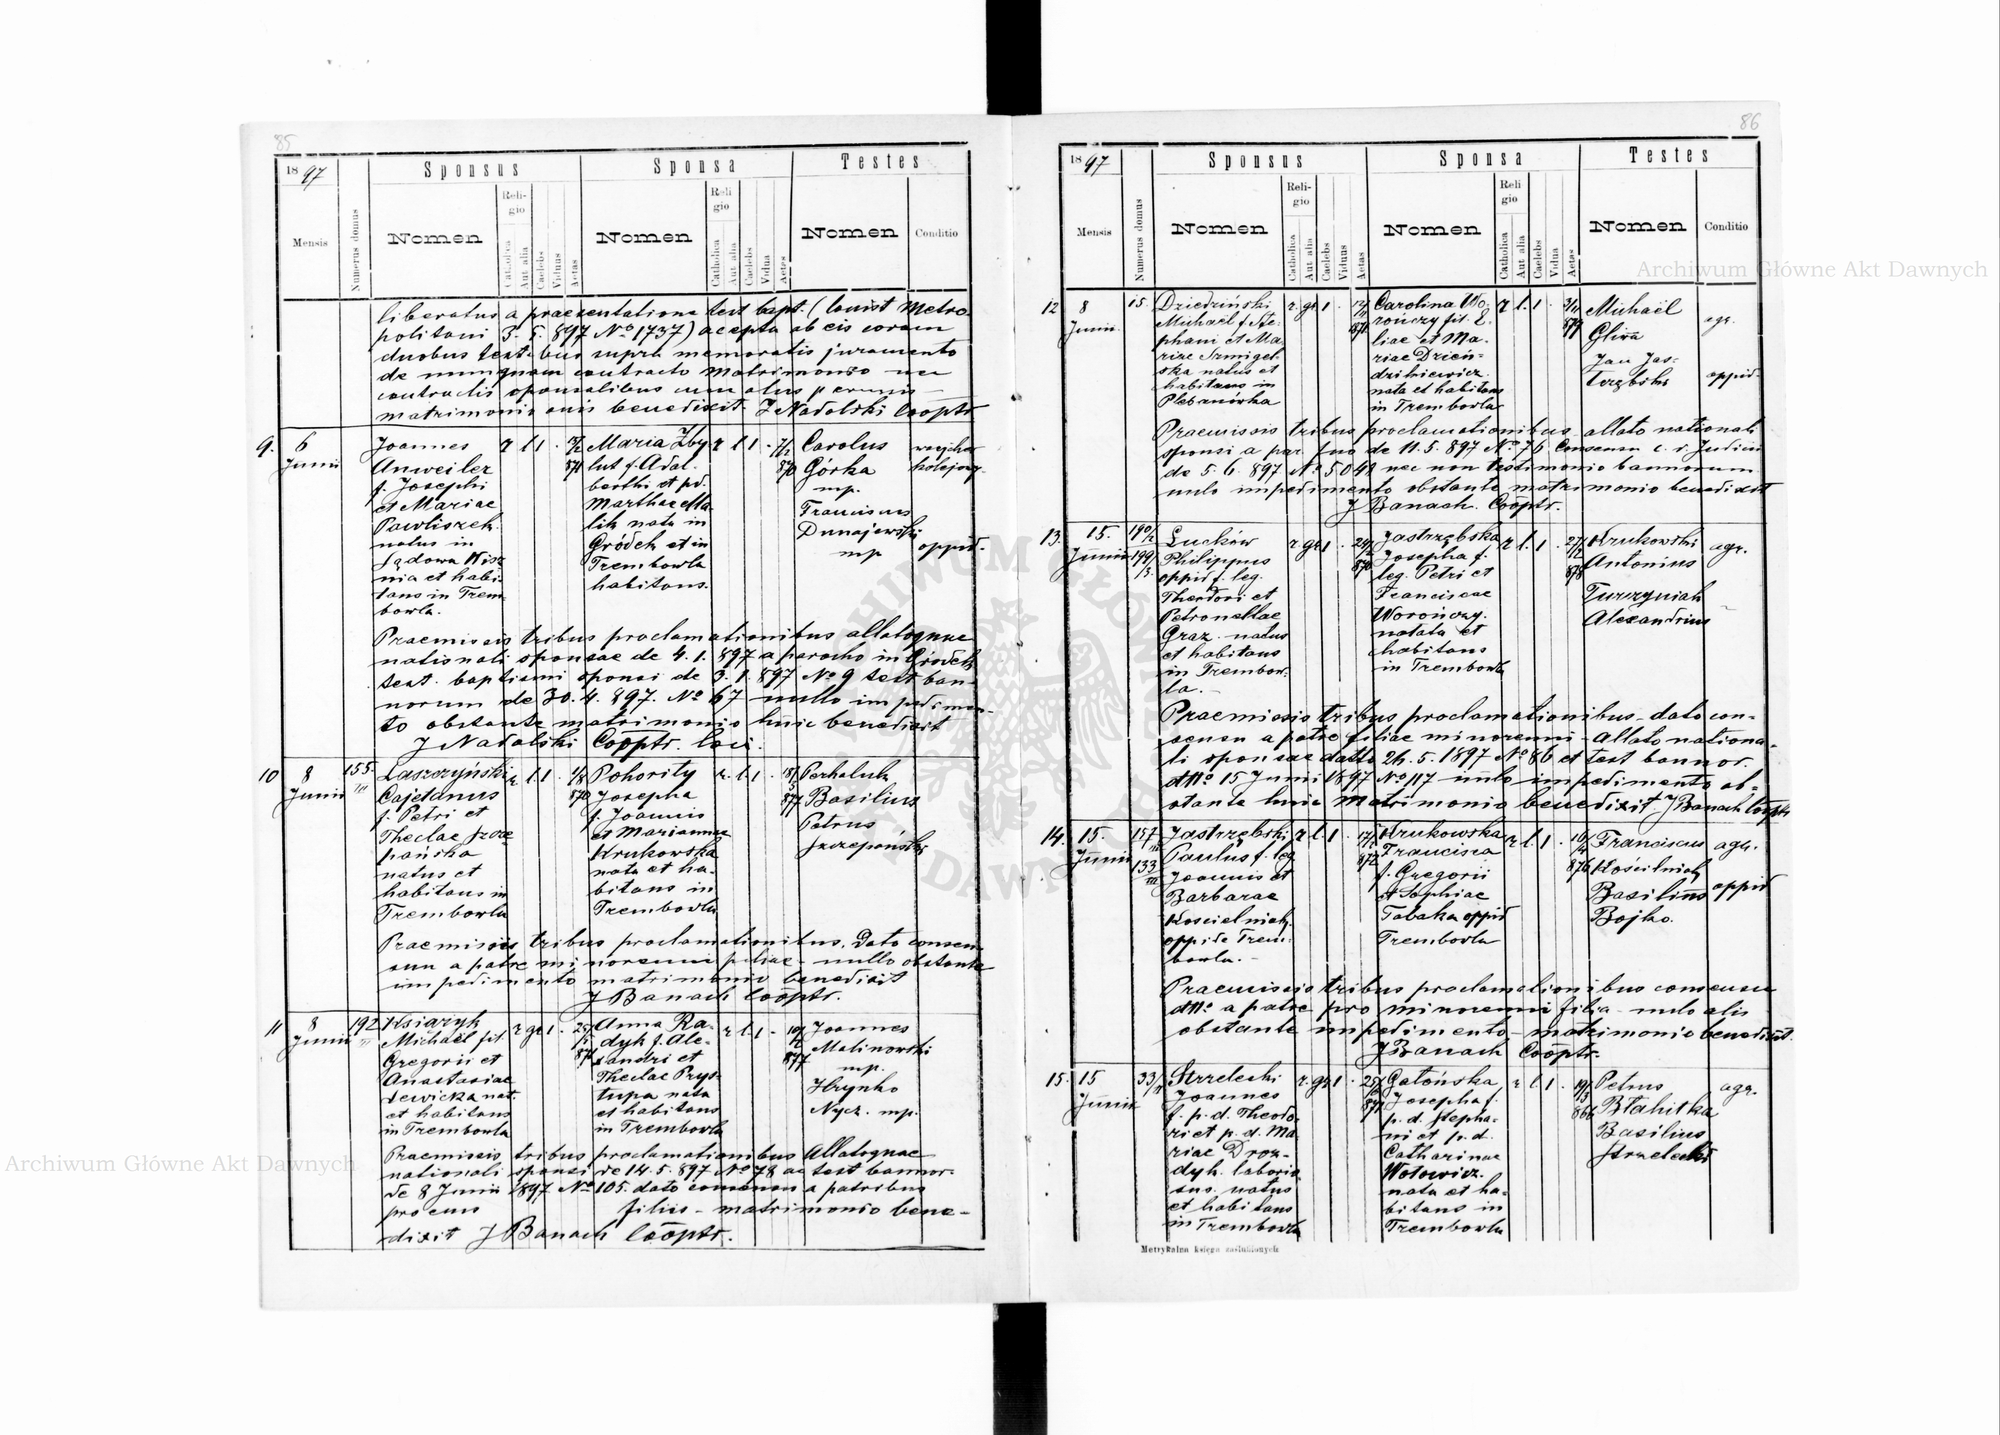 85
1897
Sponsus
Sponsa
Testes
Mensis
Numerus domus
Nomen
Religio
Catholica
Aut alia
Caelebs
Viduus
Aetas
Nomen
Religio
Catholica
Aut alia
Caelebs
Vidua
Aetas
Nomen
Conditio
liberatus a praesentatione test bapt. (Consist Metro
politani 3. 5. 897 No 1737) acepta ab eis coram
duobus testibus supra memoratis juramento
de nunquam contracto matrimonio nec
contractis sponsalibus cum alus
matrimonio benedixit. J Nadolski Cooptr
9.
6
Junii
Joannes
Anweiler
f. Josephi
et Mariae
Pawliszek
natus in
Sądowa Wisz
nia et habi
tans in Trem
bowla.
r l 1
871
Maria Zby
lut f. Adal
berthi et pd.
Marthae Ma
lik nata in
Gródek et in
Trembowla
habitans.
r l 1
870
Carolus
Górka
mp.
Franciscus
Dunajewski
mp
kolejowy
oppid.
Praemissis tribus proclamationibus allatoque
nationali sponsae de 4. 1. 897 a parocho in Gródek
test. baptismi sponsi de 3. 1. 897 No 9 test ban
norum de 30. 4. 897. No 67 nullo impedimen
to obstante matrimonio huic benedixit
J Nadolski Cooptr. loci.
10
8
Junii
155
III
Laszczyński
Cajetanus
f. Petri et
Theclae Szcze
pańska
natus et
habitans in
Trembowla
r. l. 1.
870
Pohority
Josepha
f. Joannis
et Mariannae
Krukowska
nata et ha
bitans in
Trembowla
r. l. 1
877
Perhaluk
Basilius
Petrus
Szczepański
Praemissis tribus proclamationibus. Dato consen
su a patre minorenni filiae - nullo obstante
impedimento matrimonio benedixit
J Banach Cooptr.
11
8
Junii
192
III
Ksiazyk
Michael fil.
Gregorii et
Anastasiae
Lewicka nat.
et habitans
in Trembowla
r gr 1.
Anna Ra
dyk f. Ale
xandri et
Theclae Prys
tupa nata
et habitans
in Trembowla
r. l. 1
877
Joannes
Malinowski
mp.
Hrynko
Nycz. mp.
Praemissis tribus proclamationibus Allatoque
nationali sponsi de 14. 5. 897 No 78 ac test bannor
de 8 Junii 1897 No 105. dato consensu a patribus
pro eius filiis - matrimonio bene-
dixit J Banach Cooptr.
86
1897
Sponsus
Sponsa
Testes
Mensis
Numerus domus
Nomen
Religio
Catholica
Aut alia
Caelebs
Viduus
Aetas
Nomen
Religio
Catholica
Aut alia
Caelebs
Vidua
Aetas
Nomen
Conditio
12
8
Junii.
15.
Dziedziński
Michael f. Ste
phani et Ma
riae Szmigel
ska natus et
habitans in
Plebanówka
r. gr. 1.
12/11
871
Carolina Wo
rończy fil. E
liae et Ma
riae Dzien
dzikiewicz.
nata et habitans
in Trembowla
r l. 1
3/11
879
Michaël
Gliwa
Jan Jas-
trzębski
agr.
oppid.
Praemissis tribus proclamationibus allato nationali
sponsi a par. suo de 11. 5. 897 No 76 Consensu c. r. Judicii
de 5. 6. 897 No 5042 nec non testimonio bannorum
nulo impedimento obstante matrimonio benedixit
J Banach. Cooptr.
13.
15.
Junii
190/2
199/3.
Luckow
Philippus
oppid f. leg.
Theodori et
Petronellae
Graz. natus
et habitans
in Trembow-
la. -
r. gr. 1
870
Jastrzębska
Josepha f.
leg. Petri et
Franciscae
Worończy.
natata et
habitans
in Trembowla
r. l. 1
878
Krukowski
Antonius
Turzyniak
Alexandrius
agr.
Praemissis tribus proclamationibus - dato con-
sensu a patre filiae minorenni - Allato nationa-
li sponsae datto 24. 5. 1897 No 86 et test bannor.
dtto 15 Junii 1897 No 117 nulo impedimento ob-
stante huic matrimonio benedixit. J Banach Cooptr
14.
15.
Junii
157
133
III
Jastrzębski
Paulus f. leg
Joannis et
Barbarae
Kościelniak.
oppid e Trem-
bowla. -
r. l. 1
872
Krukowska
Francisca
f. Gregorii
et Sophiae
Tabaka oppid
Trembowla
r. l. 1
876
Franciscus
Kościelniak
Basilius
Bojko.
agr.
oppid
Praemissis tribus proclamationibus consensu
dtto a patre pro minorenni filia - nulo alis
obstante impedimento - matrimonio benedixit.
J Banach Cooptr.
15.
15
Junii
33/II
Strzelecki
Joannes
f. p. d. Theodo
ri et p. d. Ma
riae Droz-
dyk. laborio
sus. natus
et habitans
in Trembowla
r. gr. 1
871
Gałońska
Josepha f.
p. d. Stepha-
ni et p. d.
Catharinae
Wołowicz.
nata et ha-
bitans in
Trembowla
r. l. 1
Petrus
Błahitka
Basilius
Strzelecki
agr.
Metrykalna księga zaślubionych
Archiwum Główne Akt Dawnych
Archiwum Główne Akt Dawnych
ARCHIWUM GŁÓWNE AKT DAWNYCH